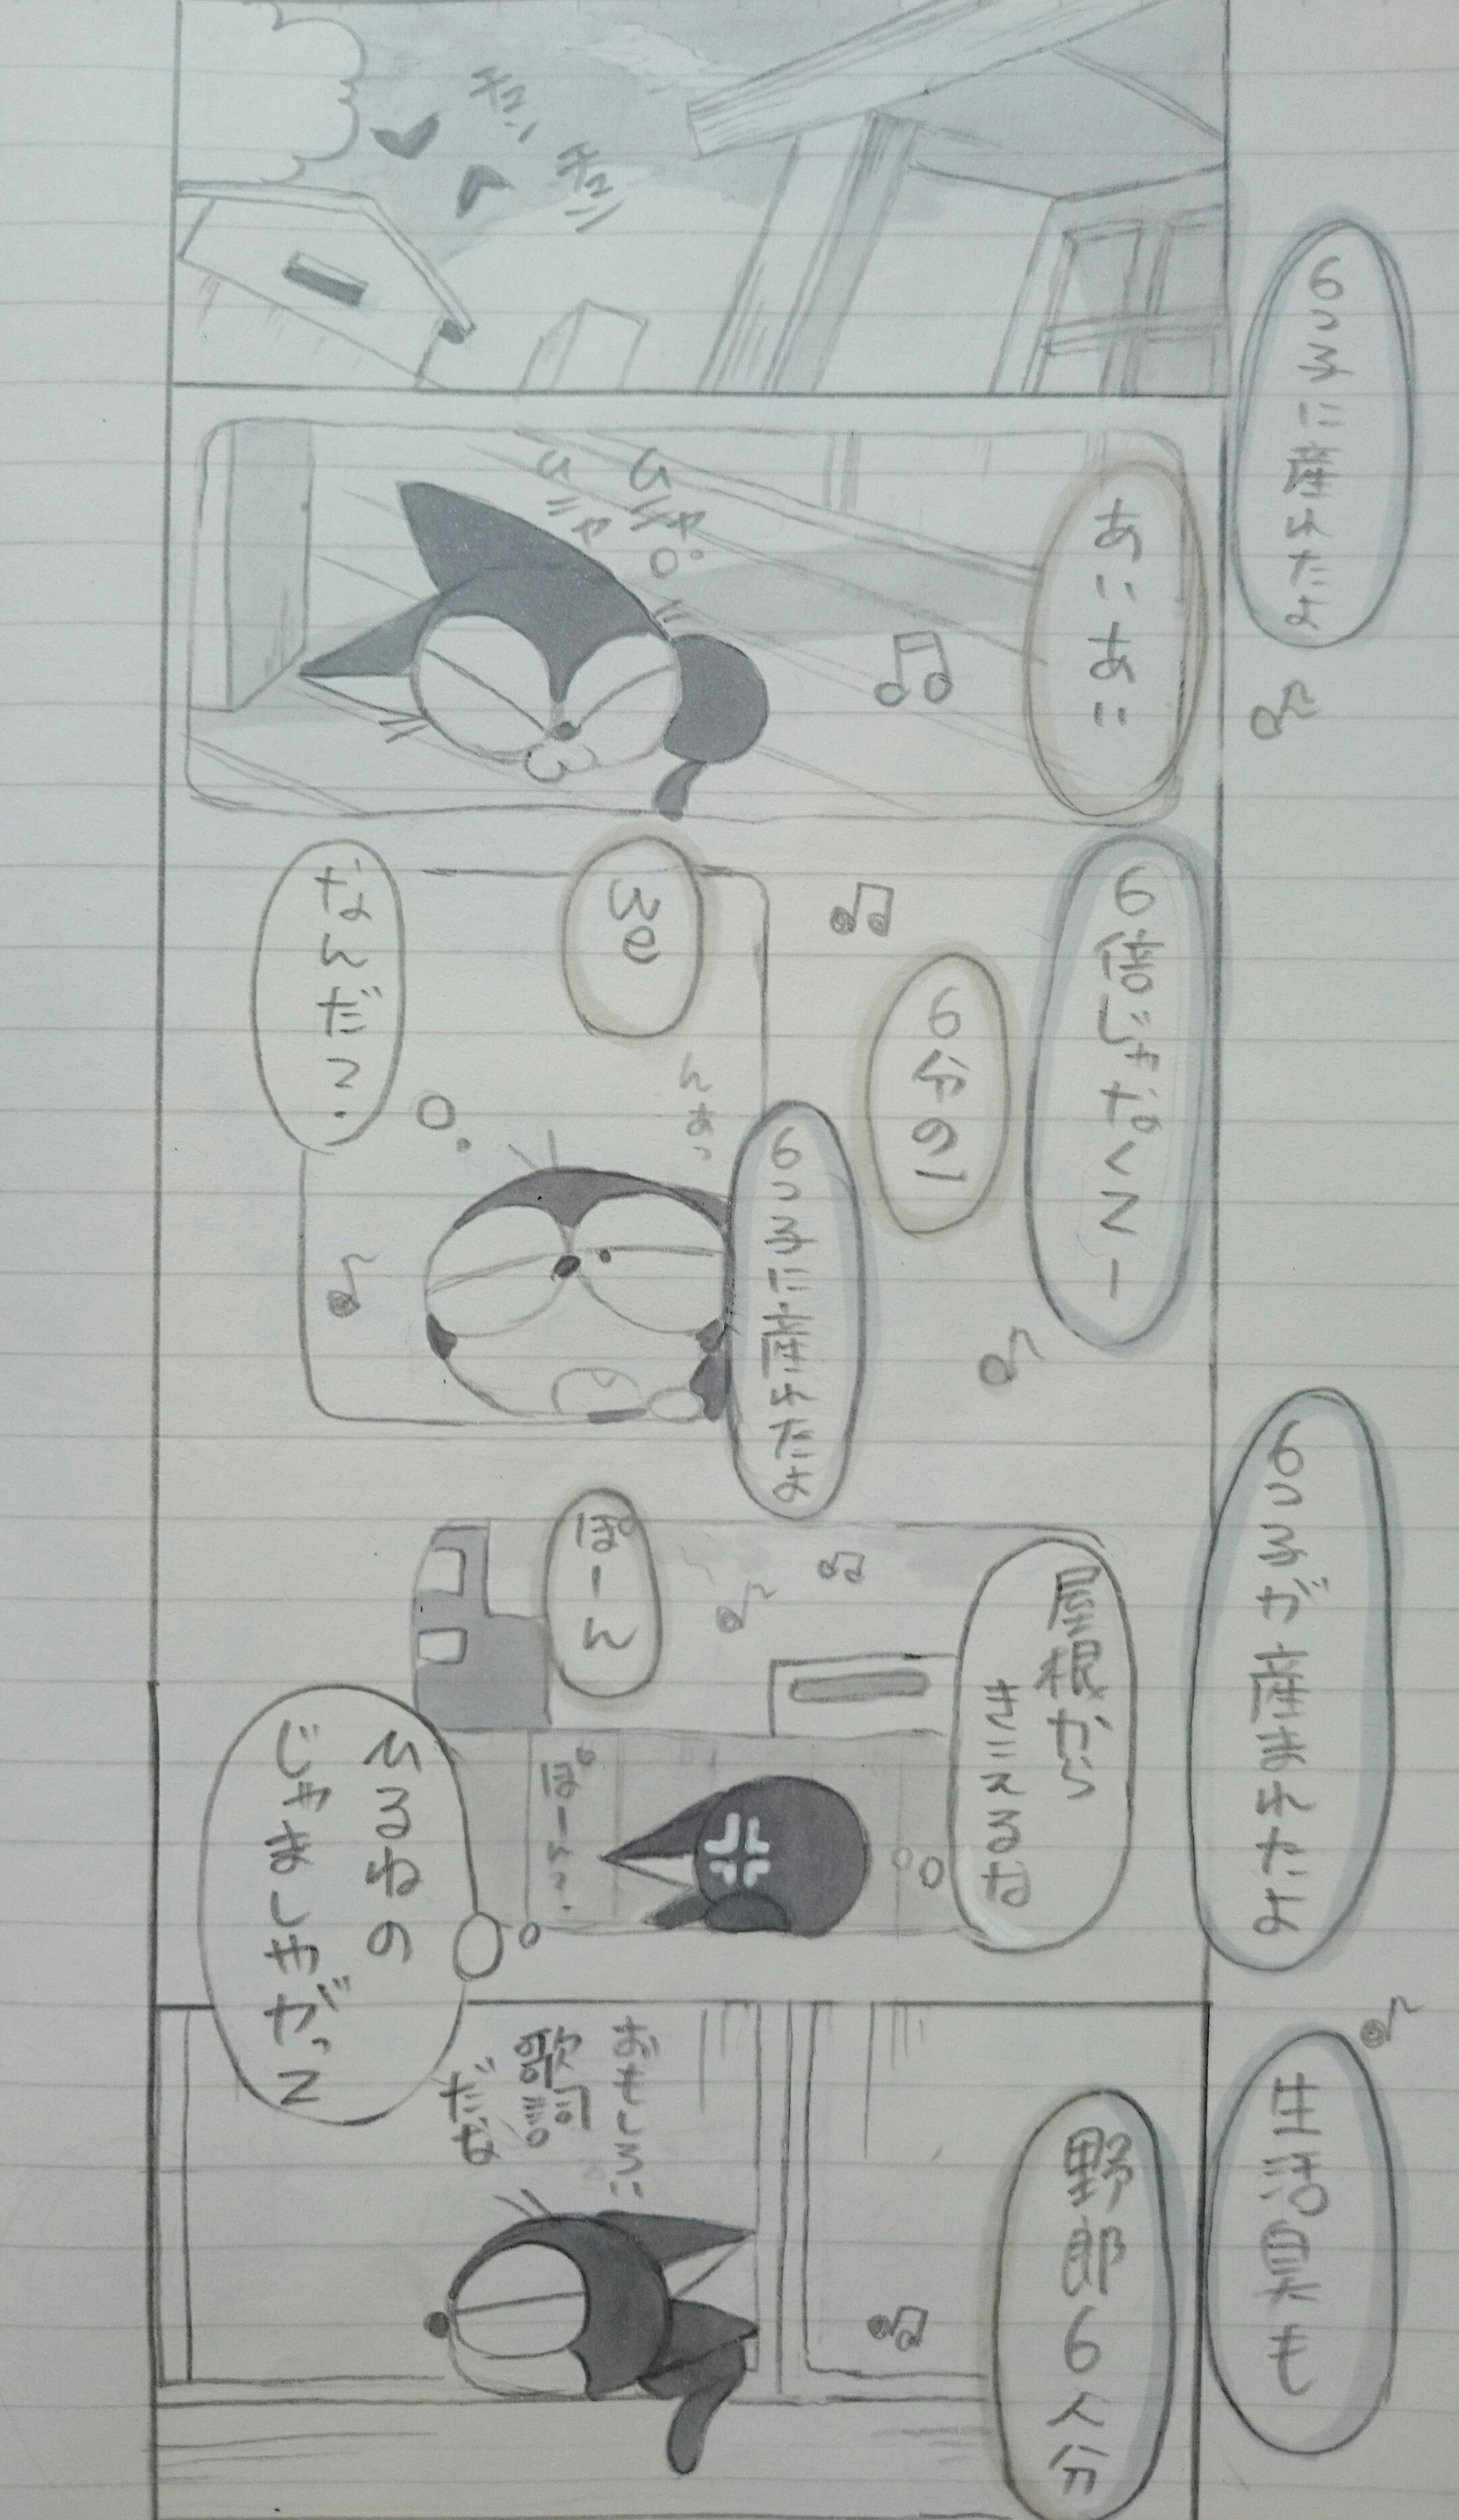 6つ子に産まれたよ
チュン
チュン
あいあい
ムニャ
ムニャ
6倍じゃなくてー
6分の1
6つ子に産まれたよ
なんだ
6つ子が産まれたよ
屋根から
きこえるな
ぽーん
ひるねの
じゃましやがって
生活臭も
野郎6人分
おもしろい
歌詞
だな